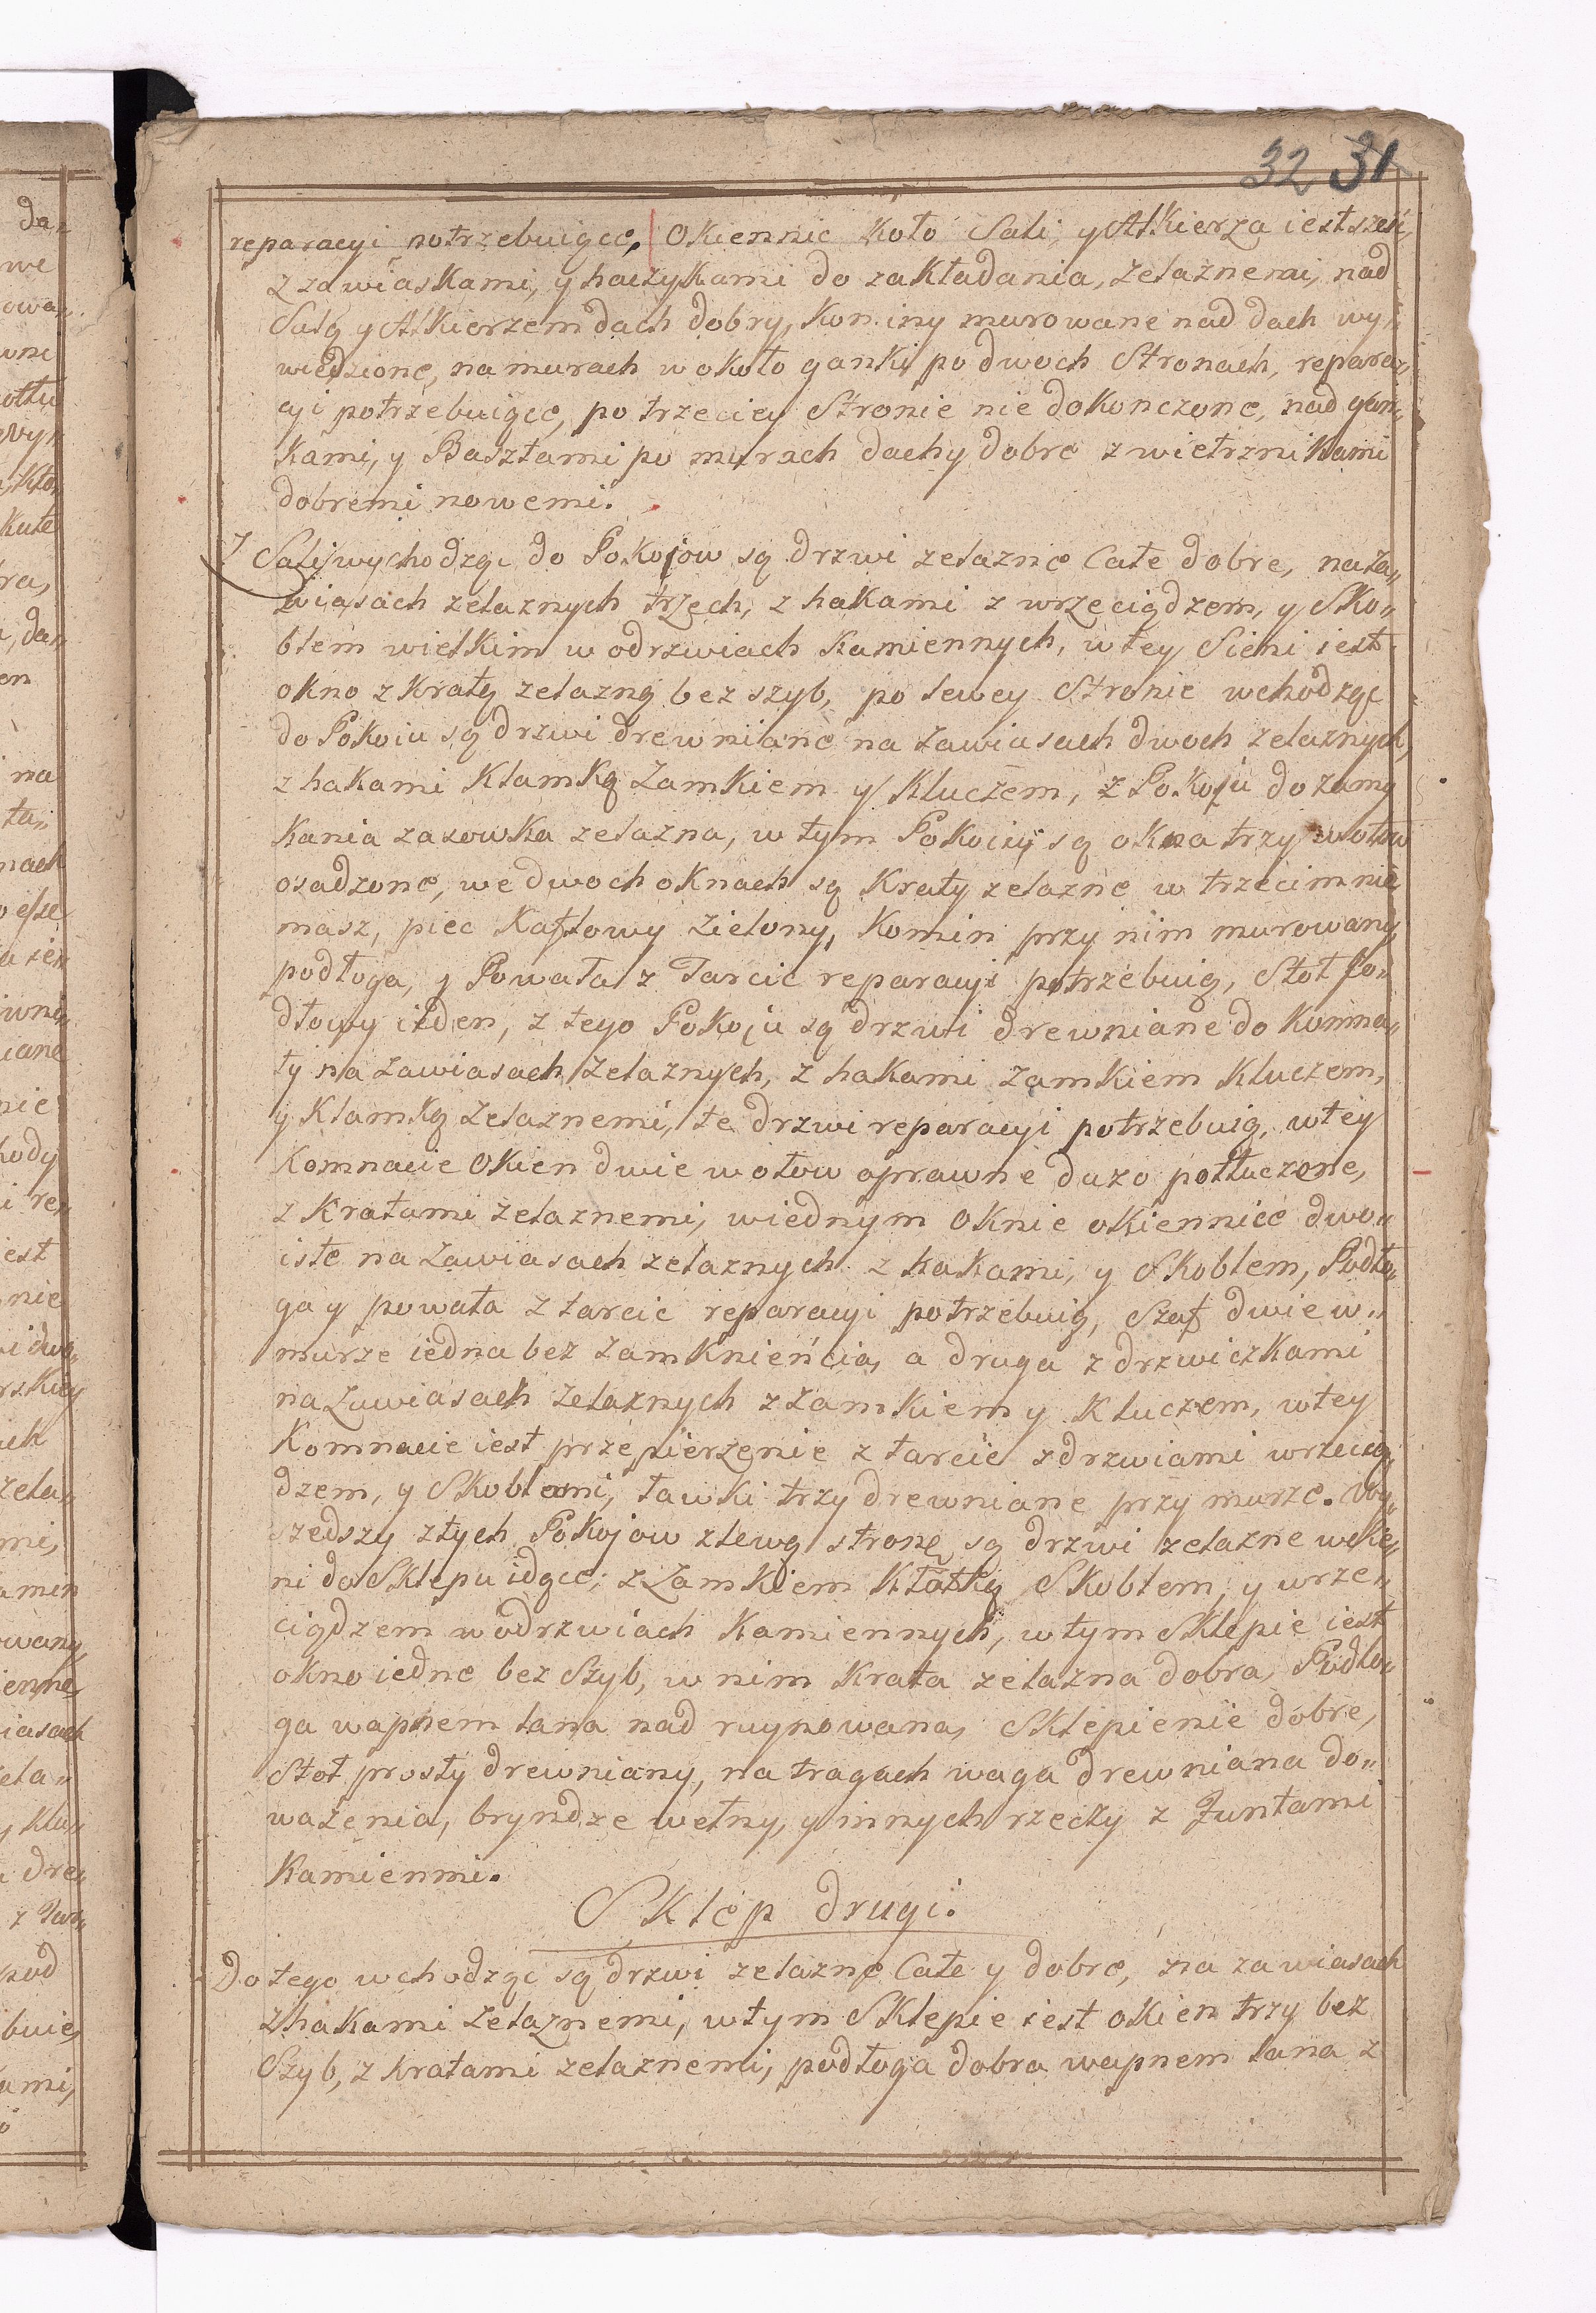 32 31
reparacyi potrzebuiące, Okiennic koło Sali, y Alkierza iest sześć
z zawiaskami, y haczykami do zakładania, zelaznemi, nad
Salą y Alkierzem dach dobry, kominy murowane nad dach wy„
wiedzione, na murach w około ganki po dwoch Stronach, repara„
cyi potrzebuiące, po trzeciey Stronie nie dokończone, nad gan„
kami, y Basztami po murach dachy dobre z wietrznikami
dobremi nowemi.
Z Sali wychodząc do Pokojow są drzwi zelazne Całe dobre, na Za„
wiasach zelaznych trzech, z hakami z wrzeciądzem, y Sko„
blem wielkim w odrzwiach kamiennych, w tey Sieni iest
okno z kratą zelazną bez szyb, po lewey Stronie wchodząc
do Pokoiu są drzwi drewniane na zawiasach dwoch zelaznych,
z hakami klamką zamkiem y kluczem, z Pokoju do zamy
kania zasowka zelazna, w tym Pokoiu są okna trzy w ołow
osadzone, we dwoch oknach są kraty zelazne w trzecim nie
masz, piec kaflowy zielony, komin przy nim murowany,
podłoga, y Powała z Tarcic reparacyi potrzebuią, Stoł Jo„
dłowy ieden, z tego Pokoju są drzwi drewniane do komna„
ty na zawiasach zelaznych, z hakami zamkiem kluczem,
y klamką zelaznemi, te drzwi reparacyi potrzebuią, w tey
komnacie Okien dwie w ołow oprawne duzo potłuczone,
z kratami zelaznemi, w iednym oknie okiennice dwo„
iste na zawiasach zelaznych z hakami, y Skoblem, Podło„
ga y powała z tarcic reparacyi potrzebuią, Szaf dwie w„
murze iedna bez zamknieńcia, a druga z drzwiczkami
na zawiasach zelaznych z zamkiem y kluczem, w tey
komnacie iest przepierzenie z tarcic z drzwiami wrzecią„
dzem, y Skoblami, ławki trzy drewniane przy murze. Wy„
szedszy z tych Pokojow z lewą stronę są drzwi zelazne w Sie„
ni do Sklepu idąc; z Zamkiem kłotką Skoblem, y wrze„
ciądzem w odrzwiach kamiennych, w tym Sklepie iest
okno iedne bez Szyb, w nim krata zelazna dobra, Podło„
ga wapnem lana nad ruynowana, Sklepienie dobre,
Stoł prosty drewniany, na tragach waga drewniana do„
wazenia, bryndze wełny, y innych rzeczy z Funtami
kamienmi.
Sklep drugi.
Do tego wchodząc są drzwi zelazne Całe y dobre, na zawiasach
z hakami zelaznemi, w tym Sklepie iest okien trzy bez
Szyb, z kratami zelaznemi, podłoga dobra wapnem lana z